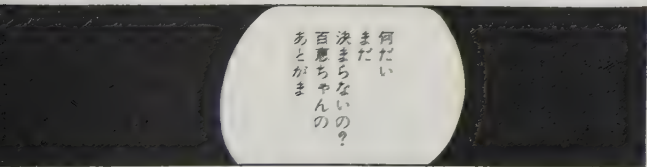 何だい
まだ
決まらないの？
百恵ちゃんの
あとがま